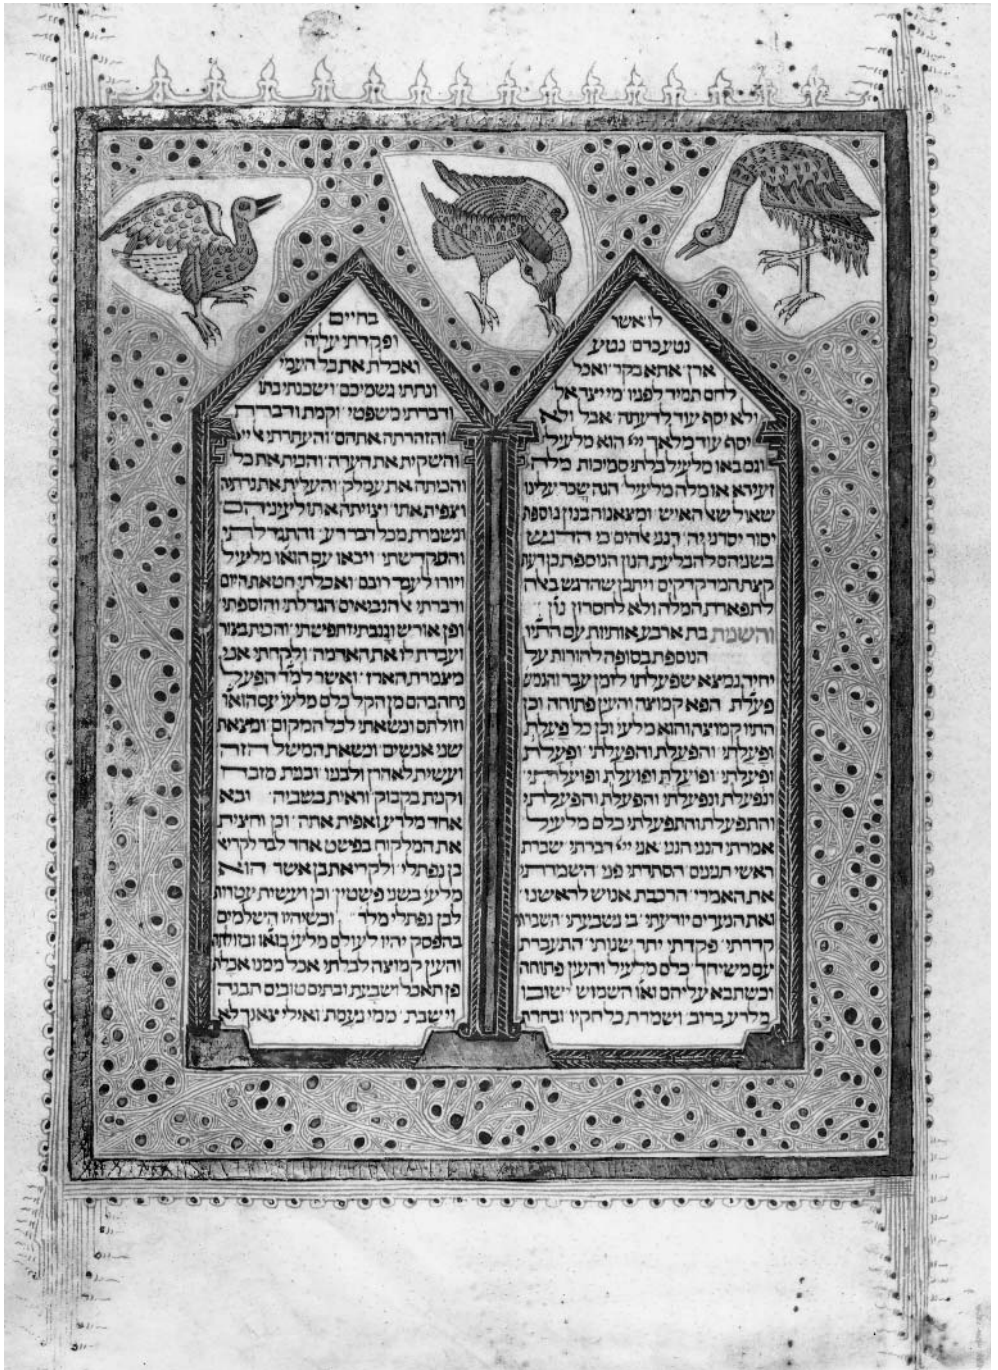 לו אשר
נטעכרם נטע
ארן אתא בקר ואכל
לחם תמיד לפניו מי ייצר אל
ולא יסף עוד לדעתה אבל ולא
יסף עוד מלאך ייי הוא מלעיל
וגם באו מלעיל בלתי סמיכות מלה
זעירא או מלה מלעיל הנה שכר עלינו
שאול שא האיש ומצאנוה בנון נוספת
יסור יסרני יה דגש
בשניהם להבלעת הנון הנוספת כן דעת
קצת המדקדקים ויתכן שהדגש בא
לתפארת המלה ולא לחסרון נון
והשמת בת ארבע אותיות עם התיו
הנוספת בסופה להורות על
יחיד נמצא שפעלתו לזמן עבר
פעלת הפא קמוצה והעין פתוחה וכן
התיו קמוצה והוא מלעיל וכן כל פיעלת
ופיעלתי והפעלת והפעלתי ופעלת
ופיעלתי ופועלת ופועלת ופועלתי
ונפעלת ונפעלתי והפעלת והפעלתי
והתפעלת והתפעלתי כלם מלעיל
אמרתי הנני הנני אני ייי דברתי שברת
ראשי תנינים הסתרתי פני השמרתי
את האמרי הרכבת אנוש לראשנו
ואת הנערים יודעתי בי נשבעתי השברתי
קדרתי פקדתי יתר שנותי התעברת
עם משיחך כלם מלעיל והעין פתוחה
וכשתבא עליהם ואו השמוש ישובו
מלרע ברוב ושמרת כל חקיו ובחרת
בחיים
ופקדתי עליה
ואכלת את כל העמי
ונתתי גשמיכם ושכנתי בתו
ודברתי משפטי וקמת ודברת
והזהרתה אתהם והעתרתי
והשקית את העדה והכית את כל
והכיתה את עמלק והעלית את נרתיה
וצפית אתו וצויתה אתו לעיניהם
ונשמרת מכל דבר רע והתגדלתי
והתקדשתי ויבאו עם הואו מלעיל
ויורו לעבד רובם ואכלתי חטאת היום
ודברתי על הנביאים הגדלתי והוספתי
ופן אורש וגנבתי ותפשתי והכית בצור
ועבדת לו את האדמה ולקחתי אני
מצמרת הארז ואשר למד הפעל
נחה בהם מן הקל כלם מלעיל עם הואו
וזולתם ונשאתי לכל המקום ומצאת
שני אנשים ונשאת המשל הזה
ועשית לאהרן ולבניו ובנית מזבח
וקנת בקבוק וראית בשביה ובא
אחד מלרע ואפית אתה וכן וחצית
את המלקוח בפשט אחד לבד לקריא
בן נפתלי ולקריאת בן אשר הוא
מלעיל בשני פשטין וכן ועשית עטרות
לבן נפתלי מלר וכשיהיו השלמים
בהפסק יהיו לעולם מלעיל בואו ובזולתה
והעין קמוצה לבלתי אכל ממנו אכלת
פן תאכל ושבעת ובתים טובים תבנה
וישבת ממי נעמת ואילי צאנך לא